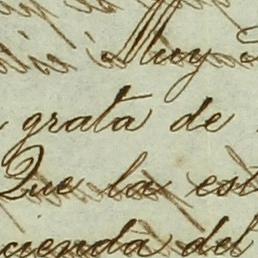 Muy
grata de
Que la est
uenda del